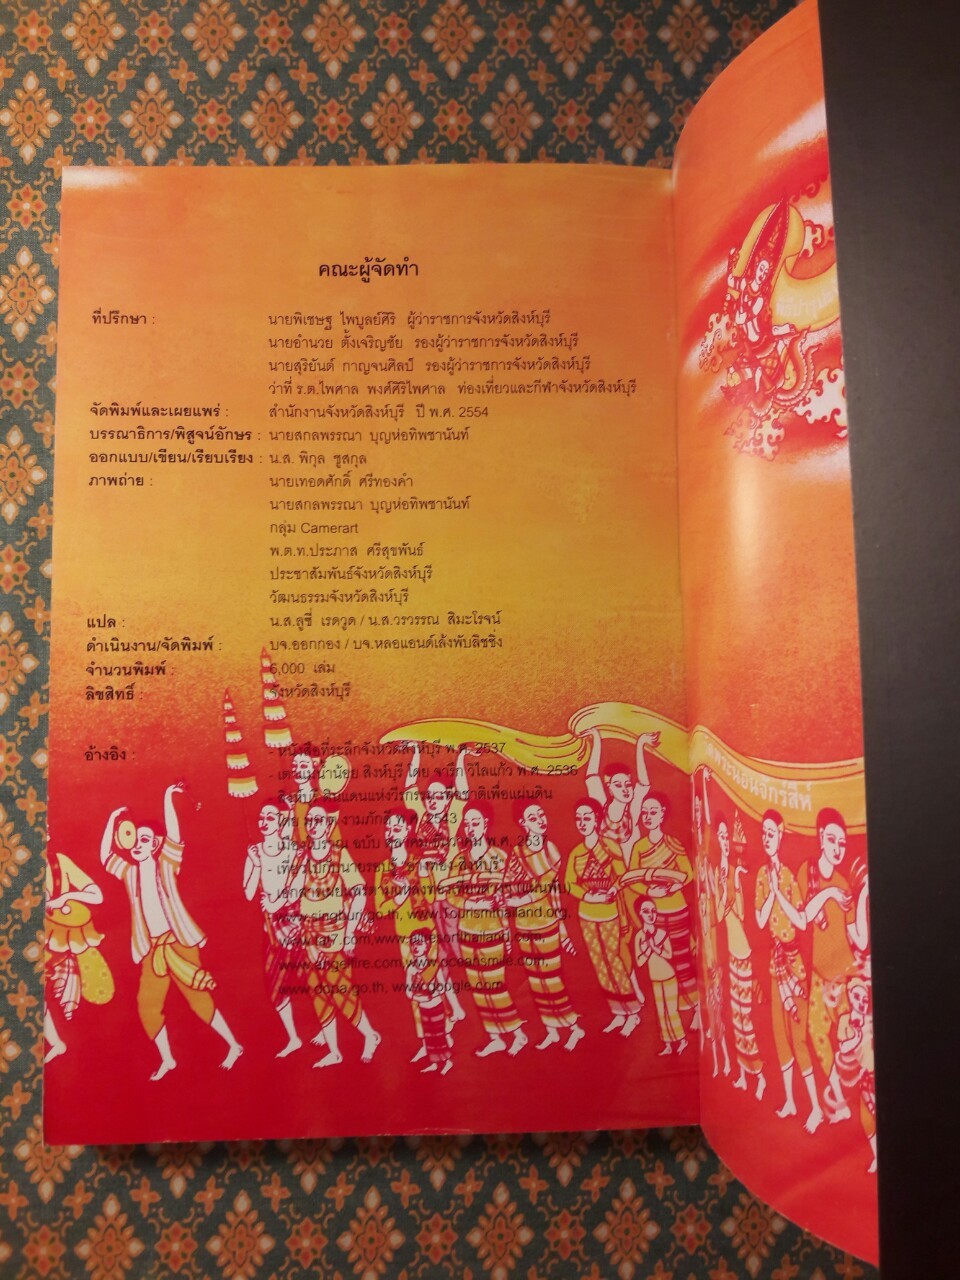 คณะผู้จัดทำ
ที่ปรึกษา : นายพิเชษฐ ไพบูลย์ศิริ ผู้ว่าราชการจังหวัดสิงห์บุรี
นายอำนวย ตั้งเจริญชัย รองผู้ว่าราชการจังหวัดสิงห์บุรี
นายสุริยันต์ กาญจนศิลป์ รองผู้ว่าราชการจังหวัดสิงห์บุรี
ว่าที่ ร.ต.ไพศาล พงศ์ศิริไพศาล ท่องเที่ยวและกีฬาจังหวัดสิงห์บุรี
จัดพิมพ์และเผยแพร่ : สำนักงานจังหวัดสิงห์บุรี ปี พ.ศ. 2554
บรรณาธิการ/พิสูจน์อักษร : นายสกลพรรณา บุญห่อทิพซานันท์
ออกแบบ/เขียน/เรียบเรียง : น.ส. พิกุล ชูสกุล
ภาพถ่าย : นายเทอดศักดิ์ ศรีทองคำ
นายสกลพรรณา บุญห่อทิพซานันท์
กลุ่ม Camerart
พ.ต.ท.ประภาส ศรีสุขพันธ์
ประชาสัมพันธ์จังหวัดสิงห์บุรี
วัฒนธรรมจังหวัดสิงห์บุรี
แปล : น.ส.ลูซี่ เรดวูด / น.ส.วรวรรณ สิมะโรจน์
ดำเนินงาน/จัดพิมพ์ : บจ.ออกกอง / บจ.หลอแอนด์เล้งพับลิชชิ่ง
จำนวนพิมพ์ : 5,000 เล่ม
ลิขสิทธิ์ : จังหวัดสิงห์บุรี
อ้างอิง : - หนังสือที่ระลึกจังหวัดสิงห์บุรี พ.ศ. 2537
- เตาแม่น้ำน้อย สิงห์บุรี โดย จารึก วิไลแก้ว พ.ศ. 2536
- สิงห์บุรี ดินแดนแห่งวีรกรรม เพื่อแผ่นดิน
โดย งามภักดี พ.ศ. 2543
- เมืองโบราณ ฉบับ พ.ศ. 2537
- เที่ยวไปกับนายรอบรู้ อ่างทอง-สิงห์บุรี
- เอกสารเผยแพร่ตามแหล่งท่องเที่ยวต่างๆ (แผ่นพับ)
www.singburi.go.th, www.Tourismthailand.org,
www.aresortthailand.com,
www.angelfire.com,www.oceansmile.com,
www.dopa.go.th, www.google.com
วัดพระนอนจักรสีห์